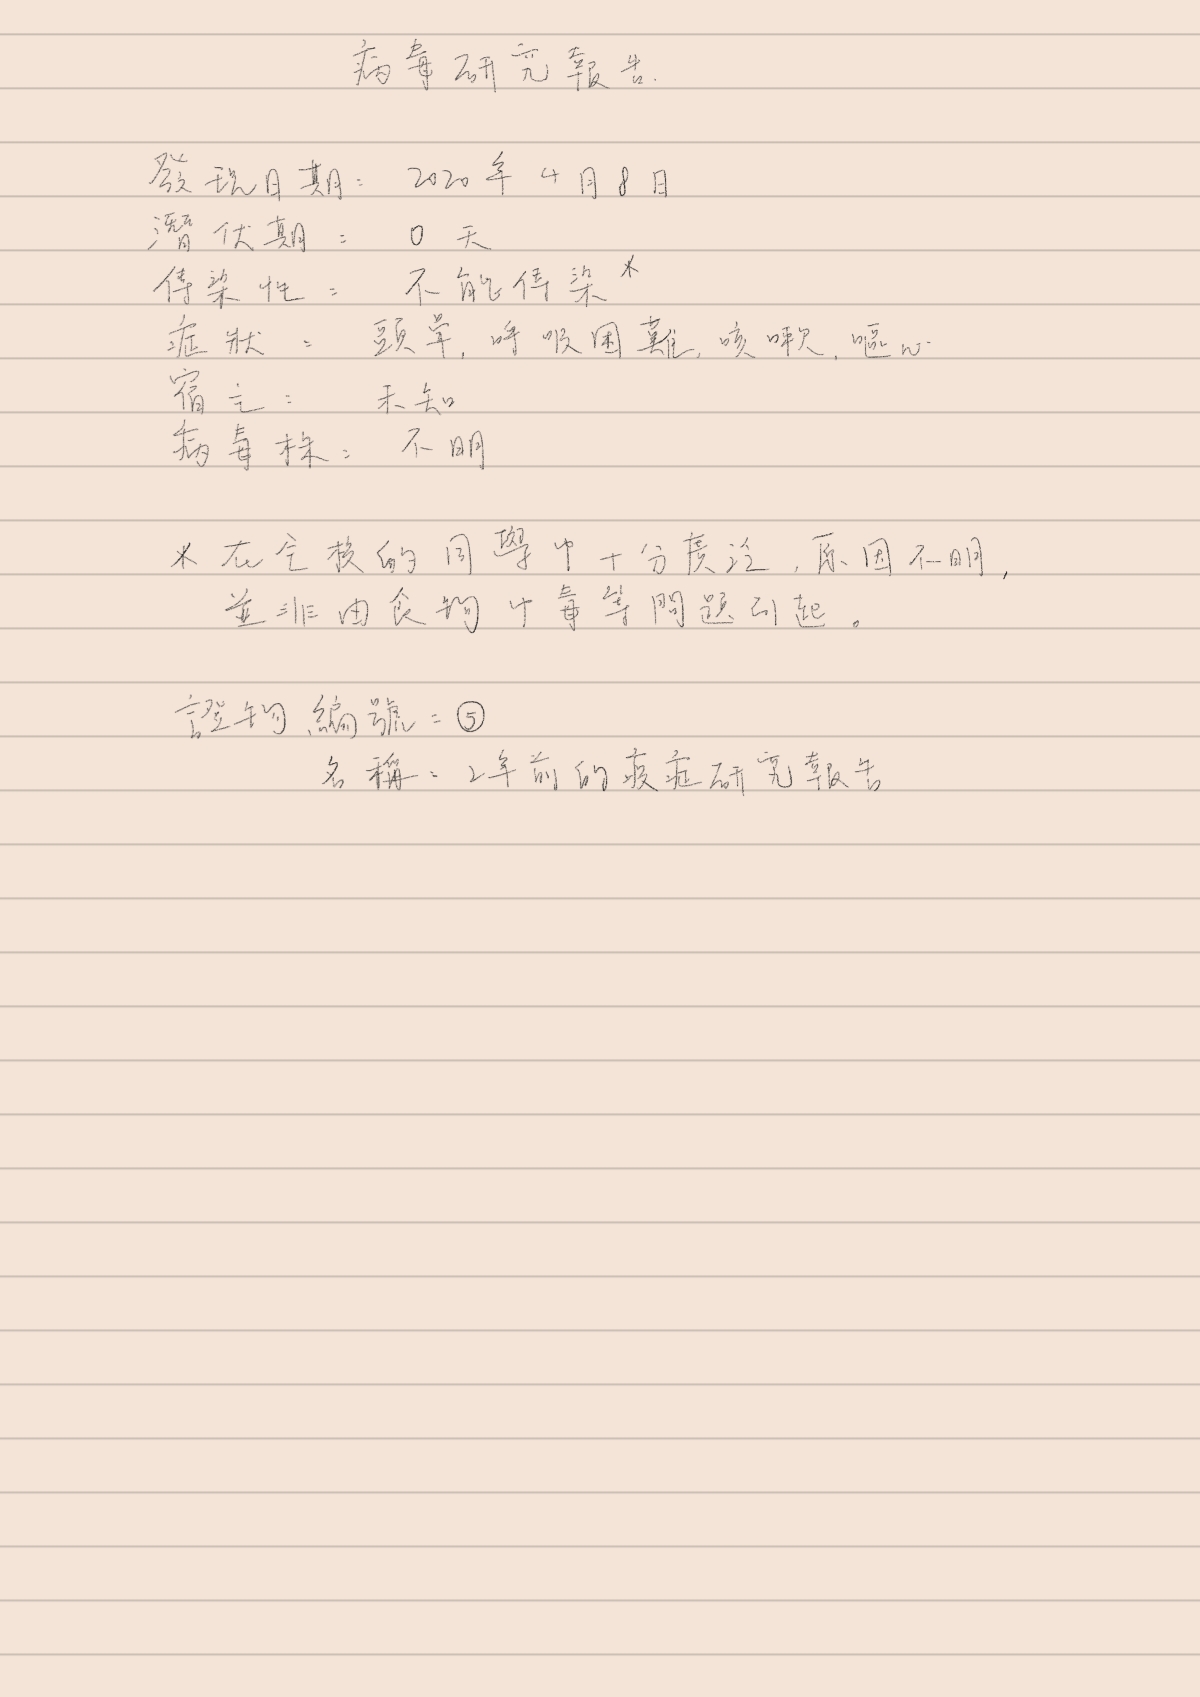 病毒研究報告.
發現日期: 2020年4月8日
潛伏期: 0天
傳染性: 不能傳染*
症狀: 頭暈, 呼吸困難, 咳嗽, 嘔心
宿主: 未知
病毒株: 不明
* 在全校的同學中十分廣泛, 原因不明,
並非由食物中毒等問題引起。
證物編號: ⑤
名稱: 2年前的疫症研究報告